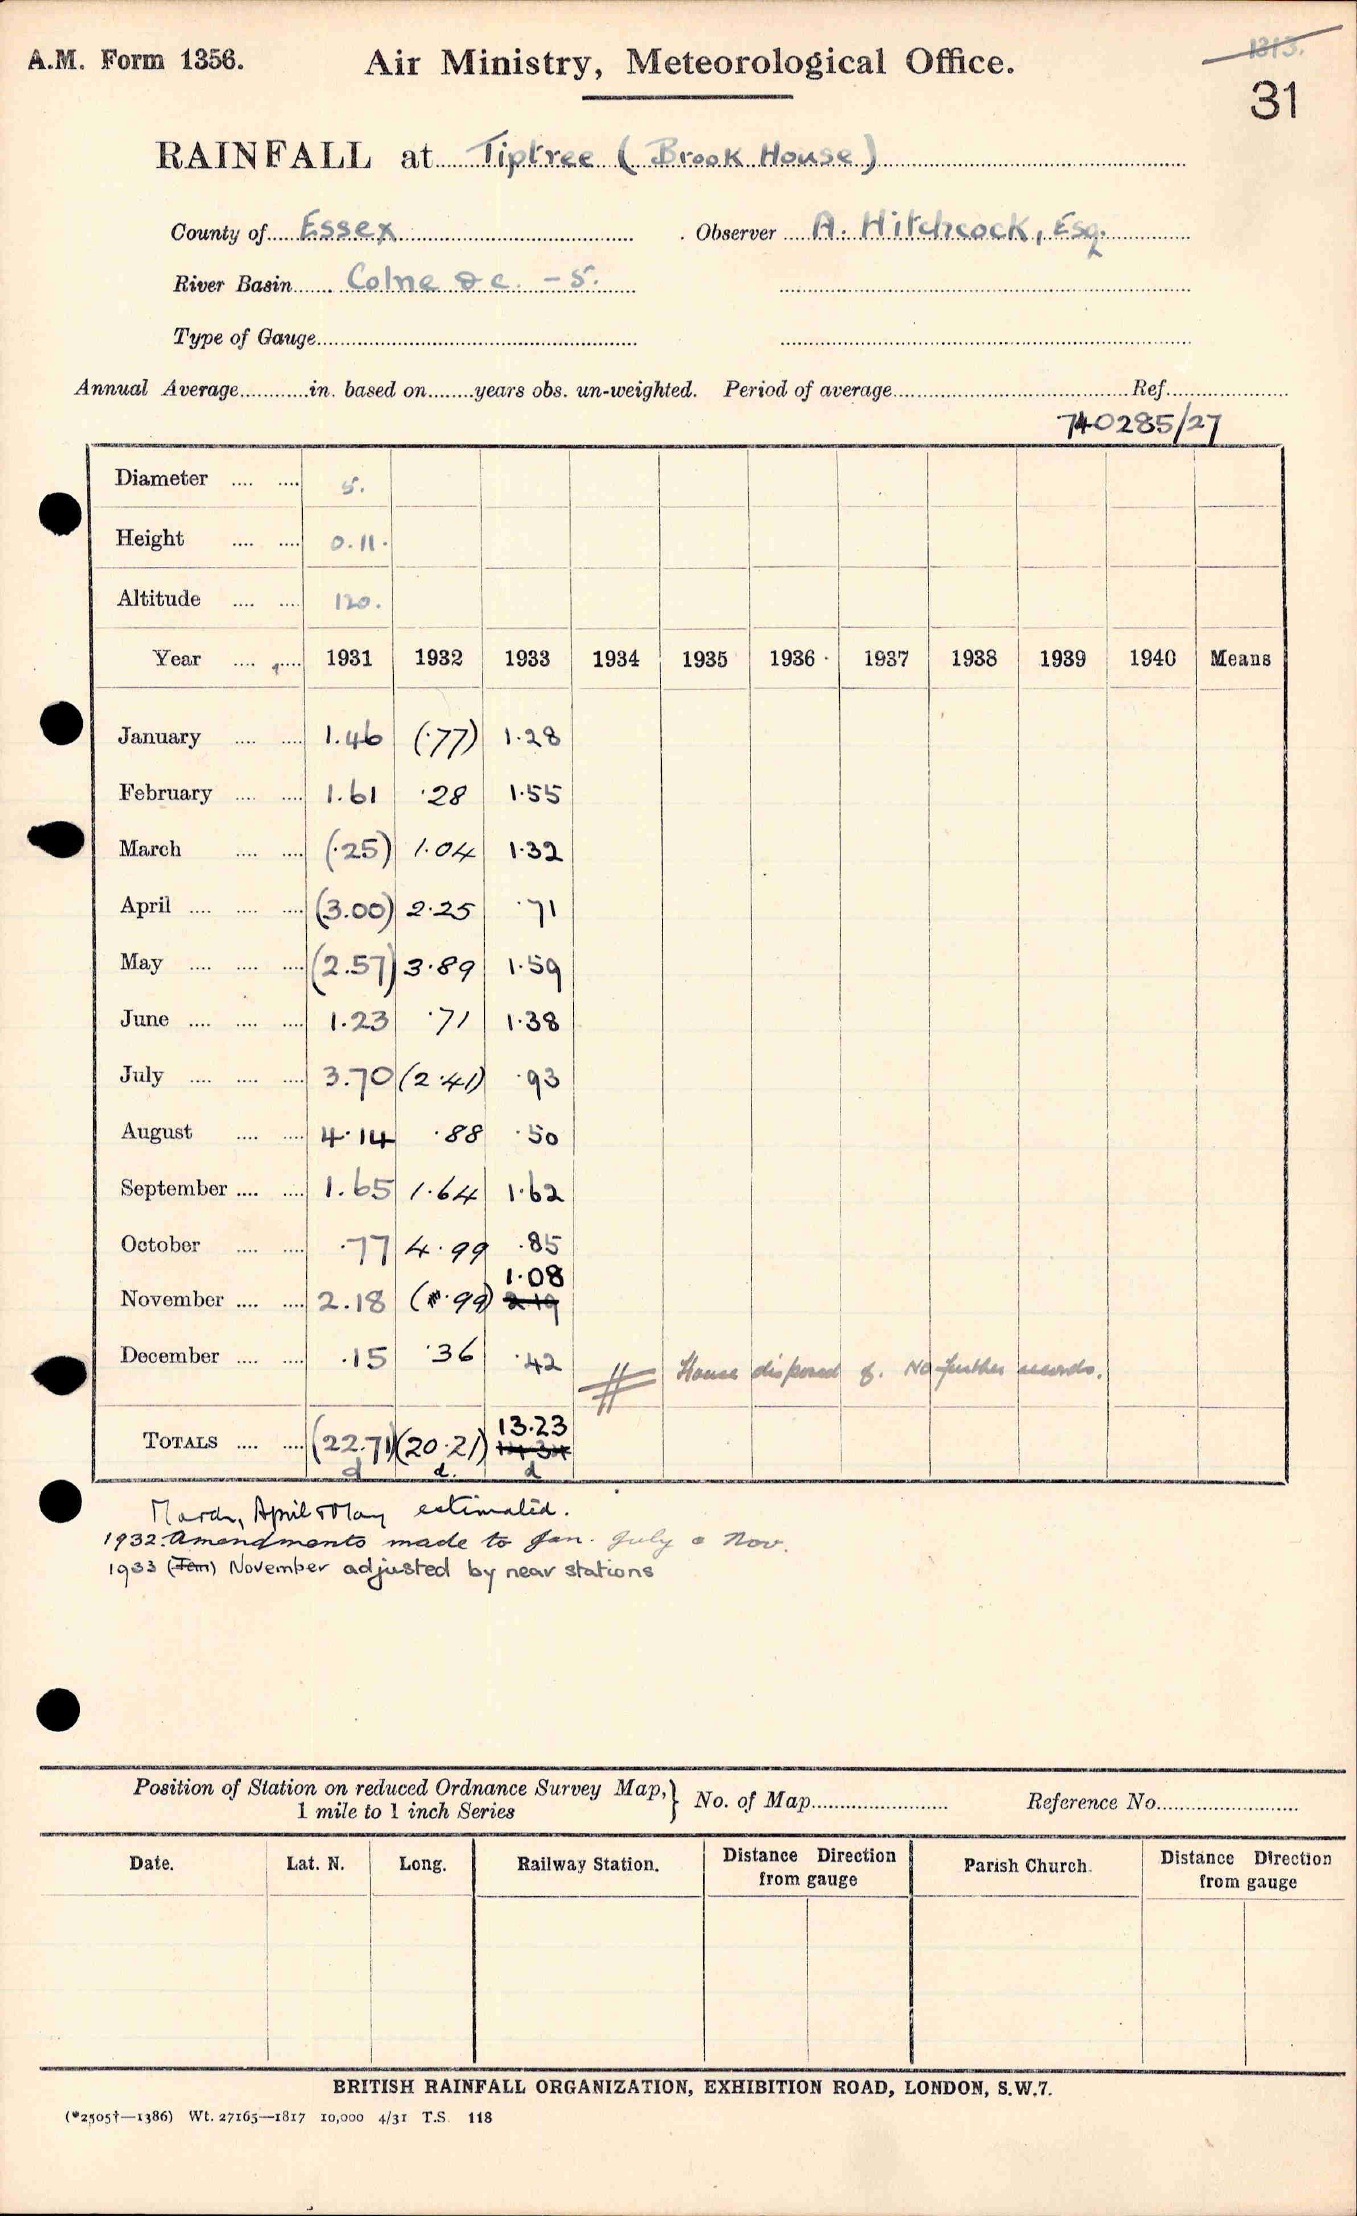 A.M. Form 1356.
Air Ministry, Meteorological Office.
1313.
31
RAINFALL at Tiptree (Brook House)
County of Essex Observer A. Hitchcock, Esq.
River Basin Colne & c. - 5.
Type of Gauge
Annual Average in. based on years obs. un-weighted. Period of average Ref.
740285/27
Diameter 5.
Height 0.11.
Altitude 120.
Year 1931 1932 1933 1934 1935 1936 1937 1938 1939 1940 Means
January 1.46 (.77) 1.28
February 1.61 .28 1.55
March (.25) 1.04 1.32
April (3.00) 2.25 .71
May (2.57) 3.89 1.59
June 1.23 .71 1.38
July 3.70 (2.41) .93
August 4.14 .88 .50
September 1.65 1.64 1.62
October .77 4.99 .85
1.08
November 2.18 (.99) 2.19
December .15 .36 .42 House disposed of. No further records.
13.23
TOTALS (22.71) (20.21) 14.34
d d. d
March, April & May estimated.
1932. Amendments made to Jan. July & Nov.
1933 (Jan) November adjusted by near stations
Position of Station on reduced Ordnance Survey Map, } No. of Map Reference No.
1 mile to 1 inch Series
Date. Lat. N. Long. Railway Station. Distance Direction from gauge Parish Church. Distance Direction from gauge
BRITISH RAINFALL ORGANIZATION, EXHIBITION ROAD, LONDON, S.W.7.
(*2505†—1386) Wt. 27165—1817 10,000 4/31 T.S. 118